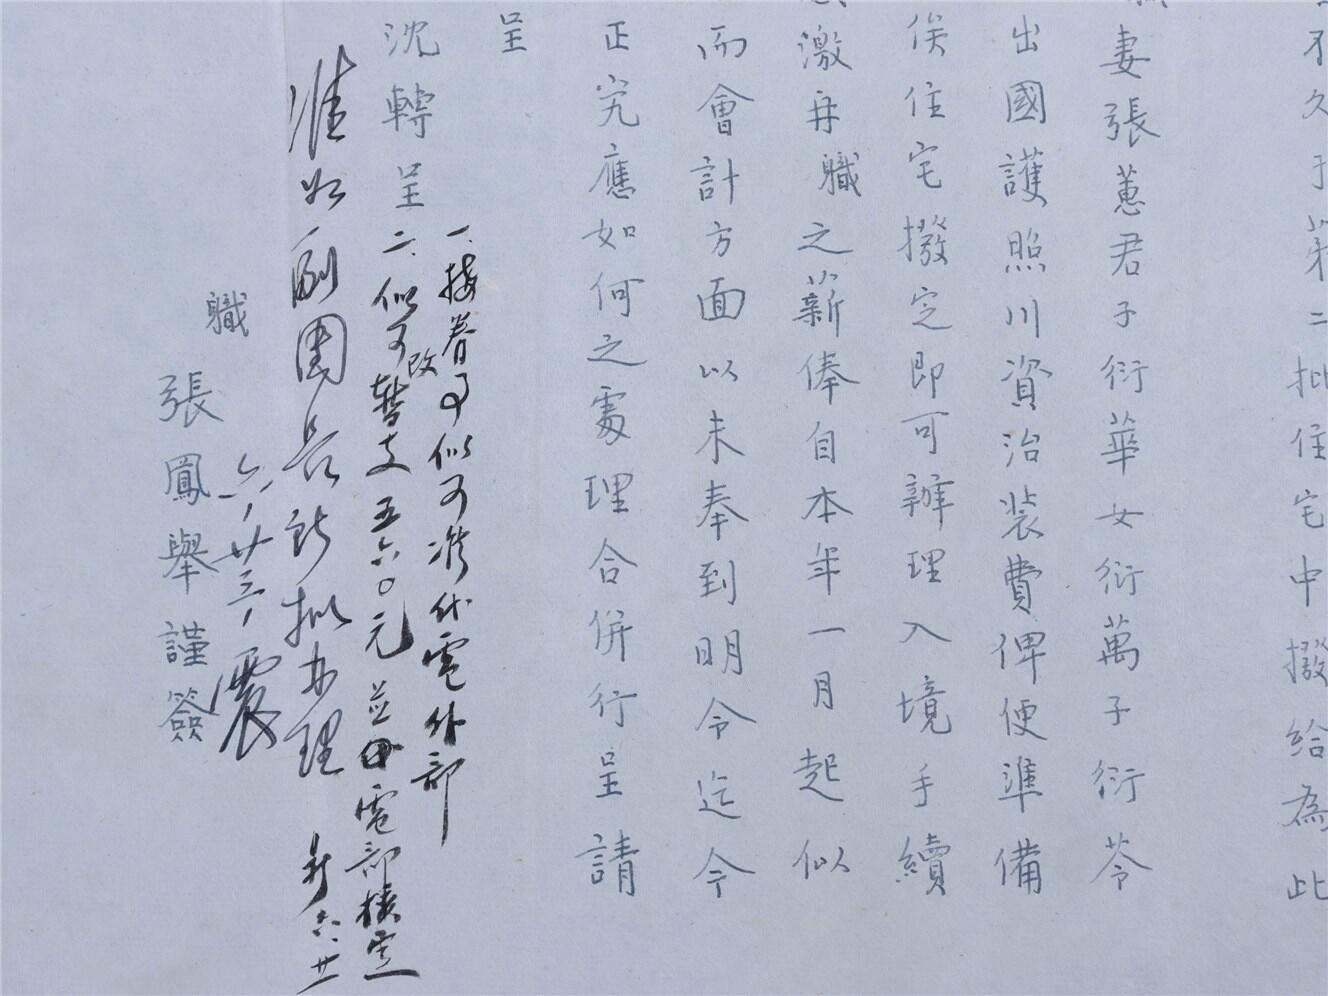 不久于第二批住宅中撥給為此
妻張蕙君子衍華女衍萬子衍苓
出國護照川資治裝費俾便準備
俟住宅撥定即可辦理入境手續
激再職之薪俸自本年一月起似
而會計方面以未奉到明令迄今
正究應如何之處理合併行呈請
呈
沈轉呈
一、接眷事似可准代電外部
二、似可改暫支五六〇元並由電部核定
六、廿
准如副團長所擬辦理
六、廿三、震
職
張鳳舉謹簽